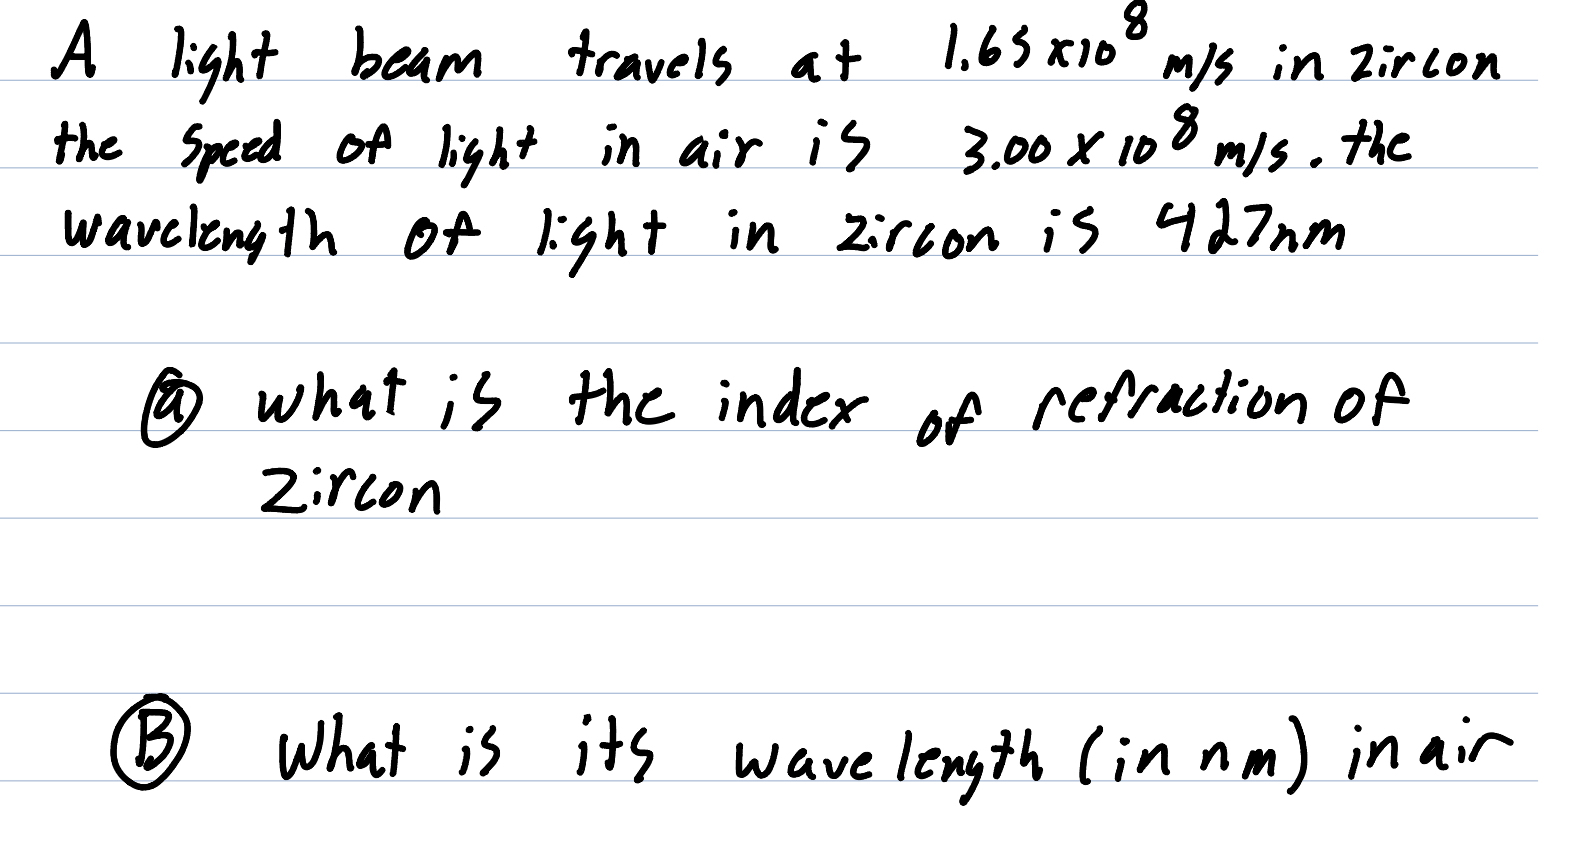 A light beam travels at 1.65 x10⁸ m/s in zircon
the speed of light in air is 3.00 x 10⁸ m/s. the
wavelength of light in zircon is 427nm
ⓐ what is the index of refraction of
zircon
Ⓑ What is its wavelength (in nm) in air